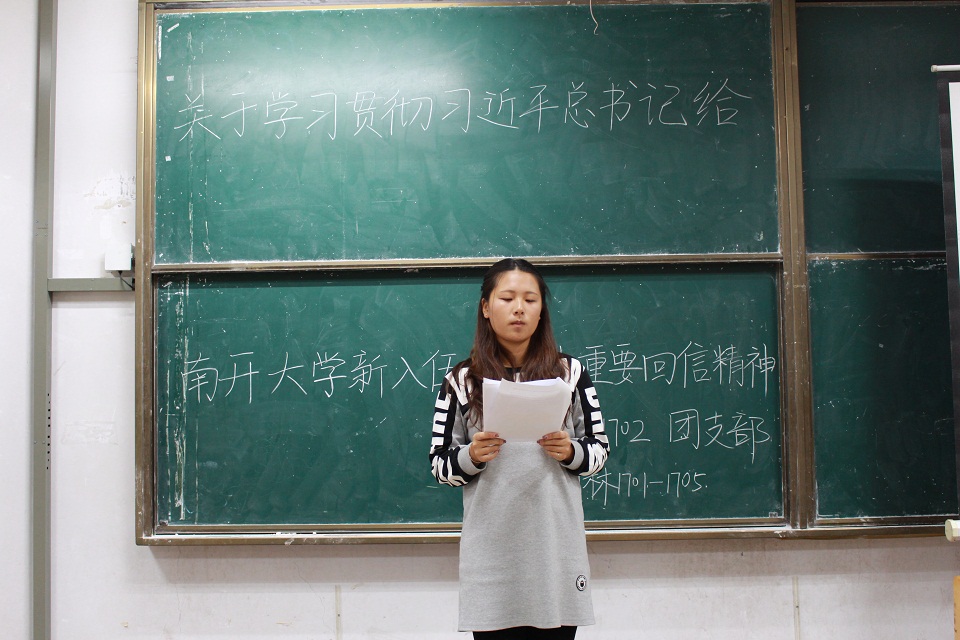 关于学习贯彻习近平总书记给
南开大学新入伍 重要回信精神
702 团支部
林1701-1705